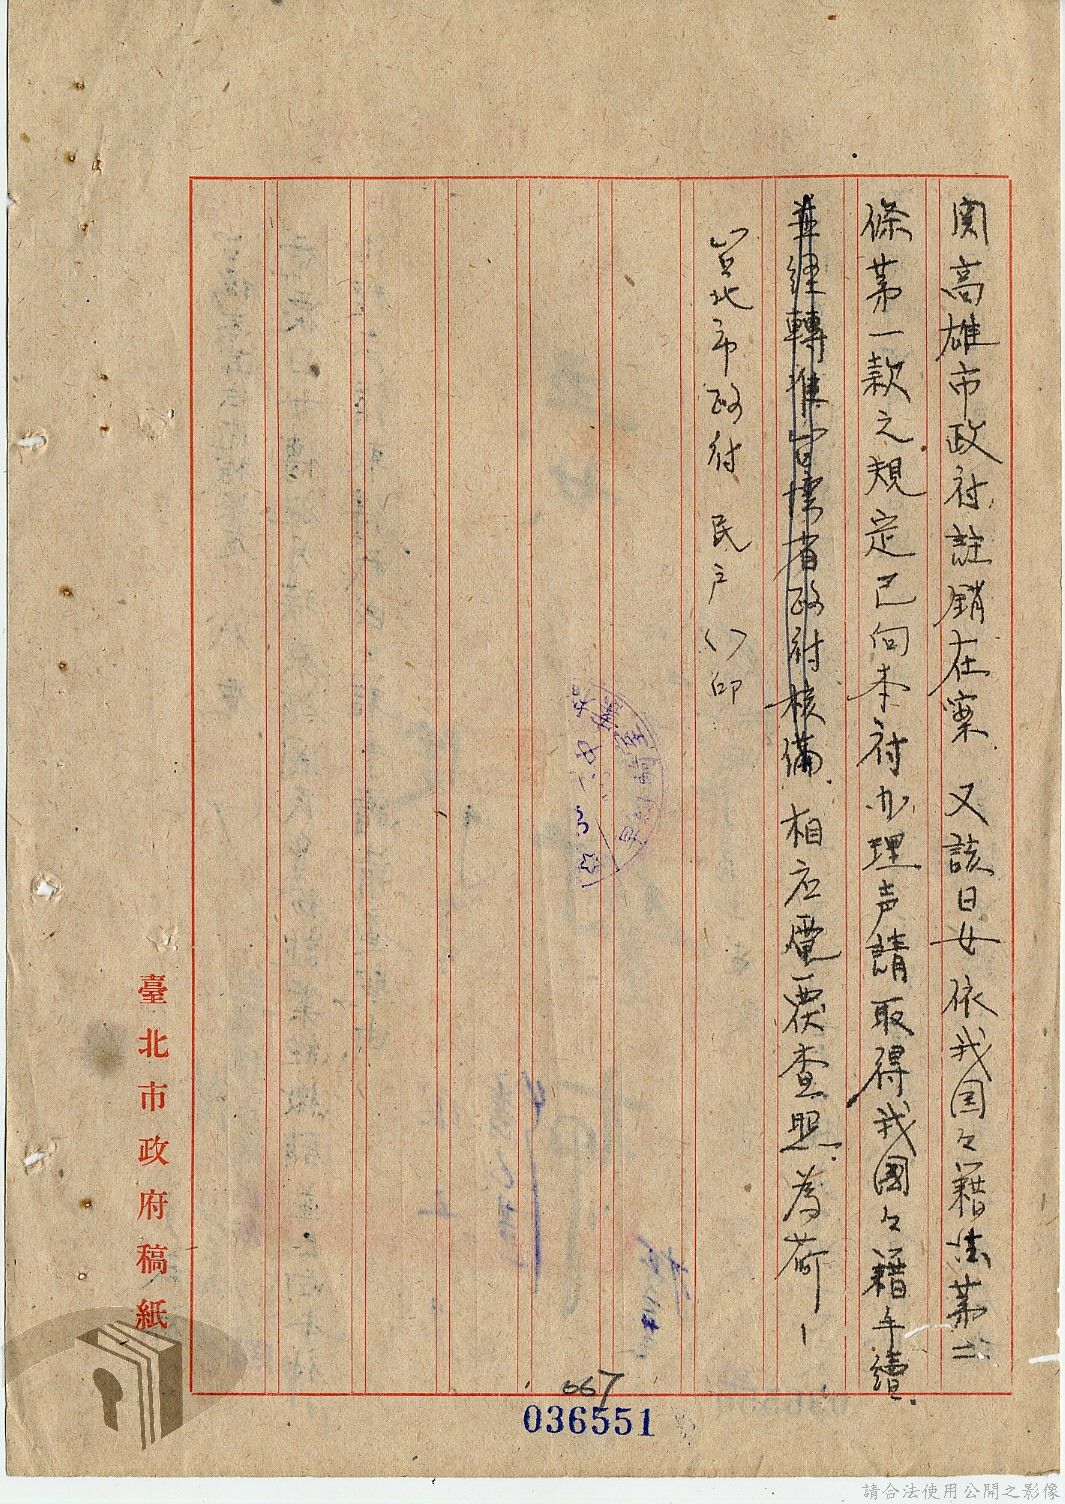 関高雄市政府註銷在案.又該日女依我国々籍法苐二
條苐一款之規定已向本府办理声請取得我國々籍手續.
並經轉準台湾省政府核備.相应電覆查照.為荷！
台北市政府 民戶() 印
臺北市政府稿紙
667
036551
請合法使用公開之影像